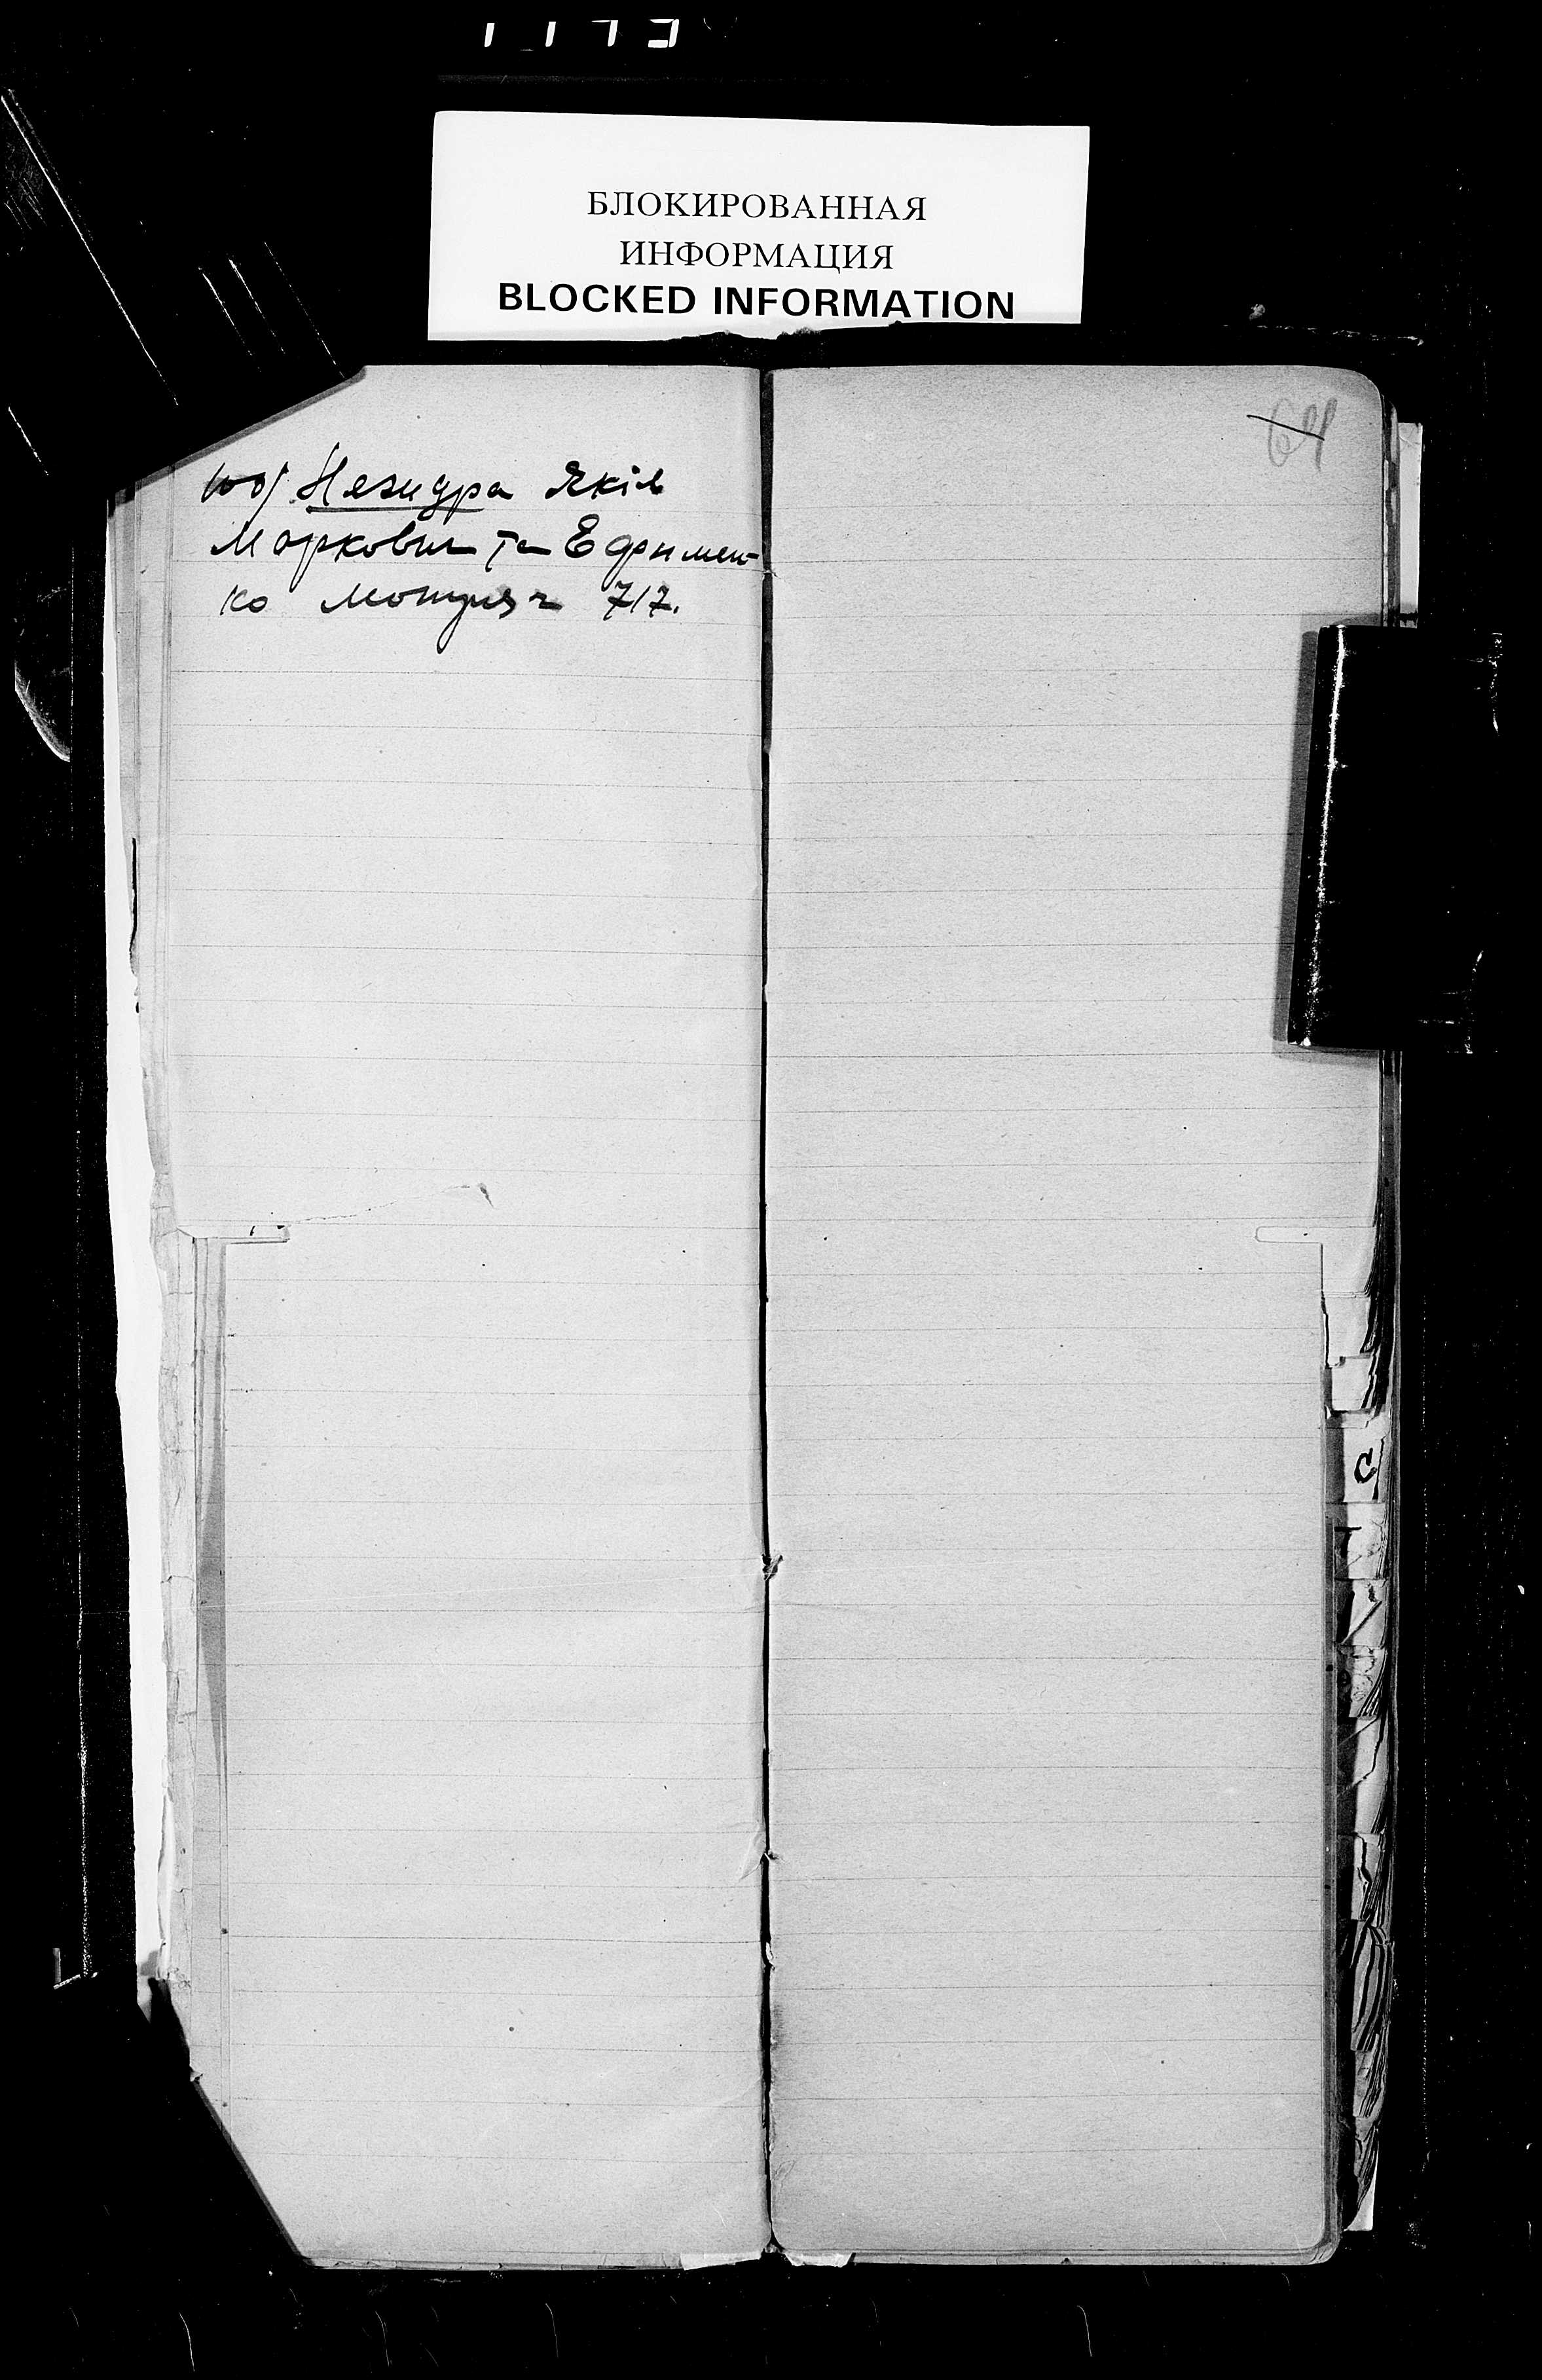 БЛОКИРОВАННАЯ
ИНФОРМАЦИЯ
BLOCKED INFORMATION
64
100/ Незидра Яків
Маркович та Єфимен-
ко Мотуля 717.
С